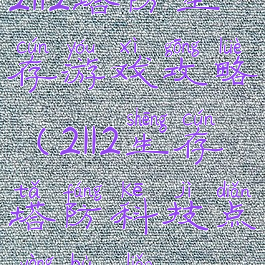 2112塔防生
cún yóu xì gōng lüè
存游戏攻略
shēng cún
(2112生存
tǎ fáng kē jì diǎn
塔防科技点